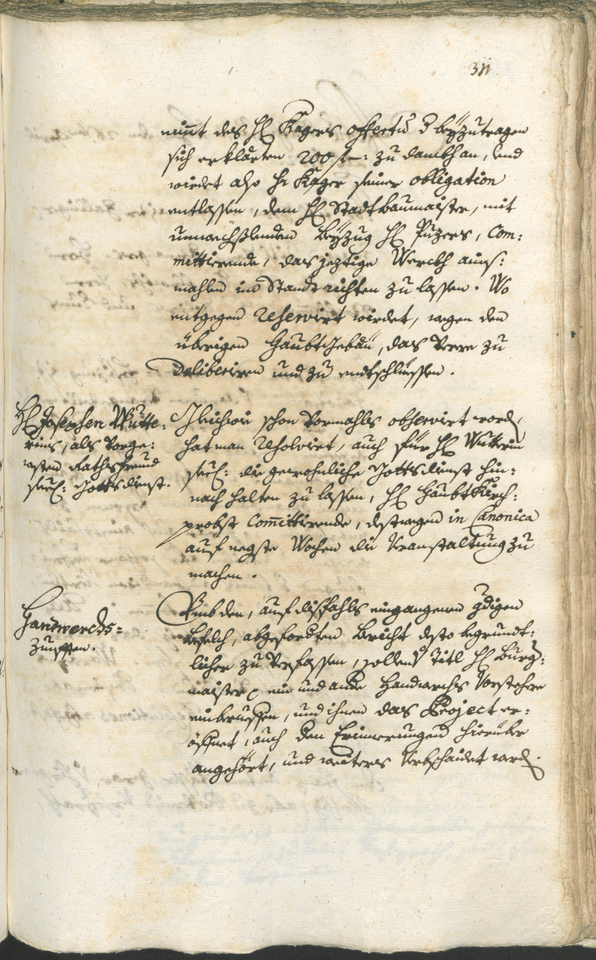 311
nimt des H: Kagers offertu d beyzutragen
sich erklärten 200 f: zu danckh an, und
wirdet also H: Kager seiner obligation
entlassen, dem H: Stadtbaumaister, mit
Beyzug H: Puzers, Com:
mittirende, das jeztige Werckh auf:
mahlen in Standt richten zu lassen. Wo
entgegen reservirt wirdet, wegen den
übrigen Haubtgebäu, das Verre zu
deliberiren und zu entschliessen.
H: Josephen Wutte:
rins, als Vorge:
westen Rathsfreund
seel: Gottsdienst.
Gleichwie schon Vormahls observirt word,
hat man resolvirt, auch für H: Wutterin
seel: die gewohnliche Gottsdienst hin:
nach halten zu lassen, H: Haubt Kirch:
probst Committirende, destwegen in Canonica
auf negste Wochen die Veranstaltung zu
machen.
Handwerchs:
Zunfften.
Umb den, auf disfahls eingangenen gdigen
Befelch, abgeforderten Bericht desto begründt:
licher zu Verfassen, sollen Titl H: Burg:
maister ein und ande Handwerchs Vorstehere
einberueffen, und ihnen das Project er:
öffnet, auch den Erinnerungen hierüber
angehört, und weiteres Verbschaidet werd.